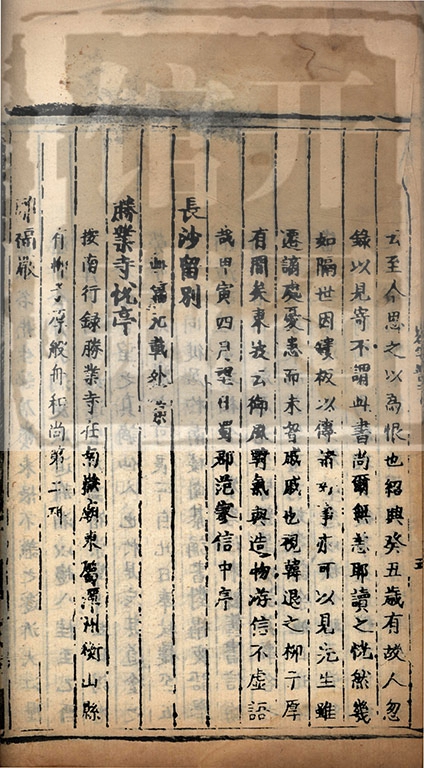 云至今思之以為恨也紹興癸丑歲有故人忽
錄以見寄不謂此書尚爾無恙耶讀之恍然幾
如隔世因鏤板以傳諸好事亦可以見先生雖
遷謫處憂患而未嘗戚戚也視韓退之柳子厚
有間矣東坡云御風騎氣與造物游信不虛語
哉甲寅四月望日蜀郡范寥信中序
長沙留別
此篇元載外集
勝業寺悅亭
按南行録勝業寺在南嶽廟東屬潭州衡山縣
有柳子厚般舟和尚第二碑
離福嚴